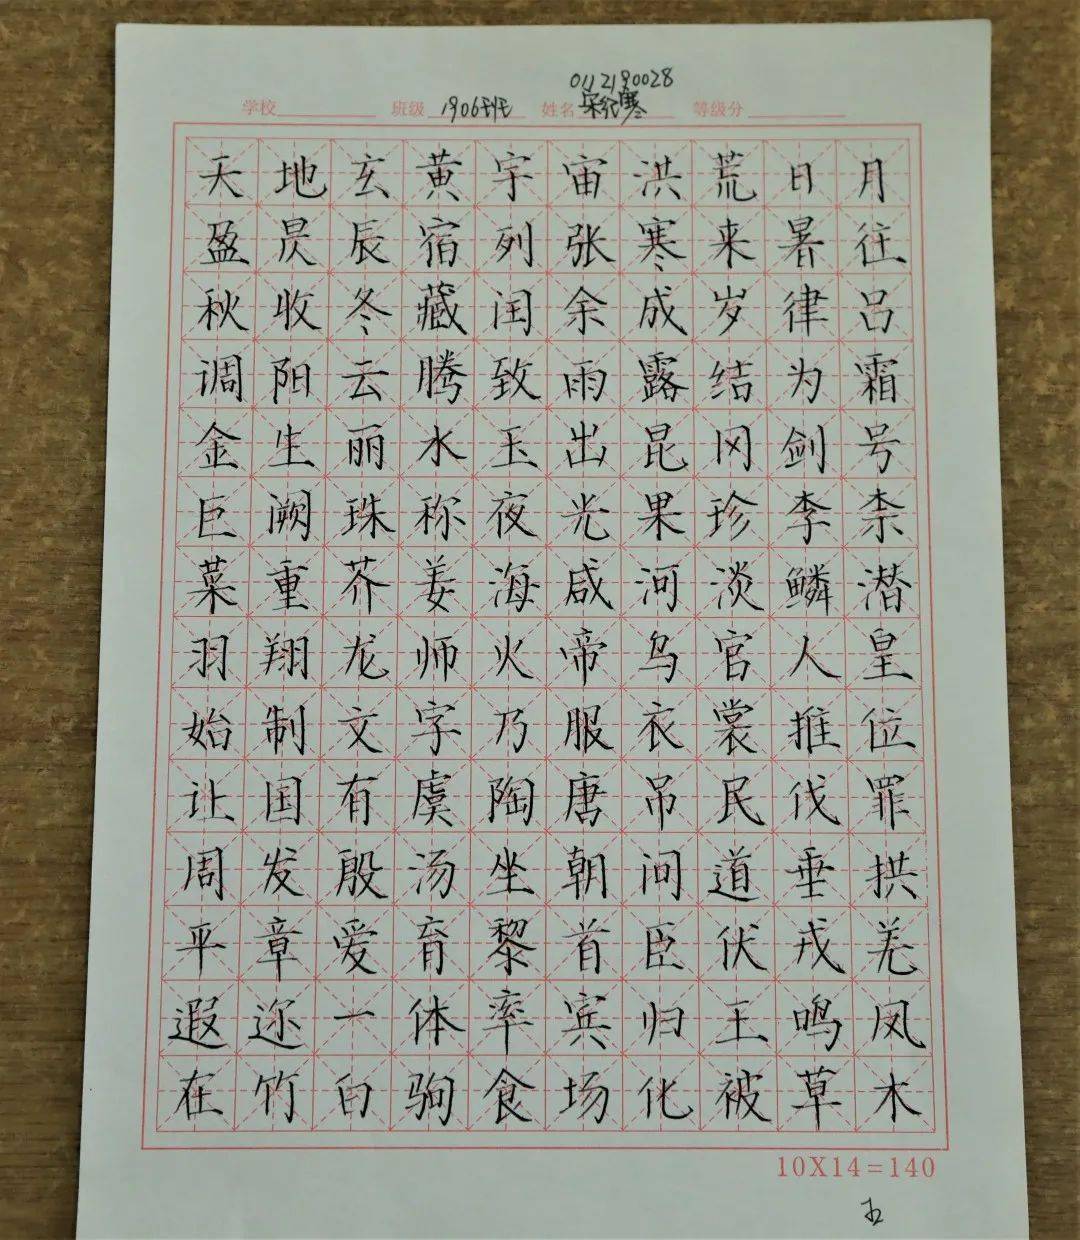 0112190028
学校 班级 1906班 姓名 宋纪寒 等级分
天地玄黄宇宙洪荒日月
盈昃辰宿列张寒来暑往
秋收冬藏闰余成岁律吕
调阳云腾致雨露结为霜
金生丽水玉出昆冈剑号
巨阙珠称夜光果珍李柰
菜重芥姜海咸河淡鳞潜
羽翔龙师火帝鸟官人皇
始制文字乃服衣裳推位
让国有虞陶唐吊民伐罪
周发殷汤坐朝问道垂拱
平章爱育黎首臣伏戎羌
遐迩一体率宾归王鸣凤
在竹白驹食场化被草木
10X14=140